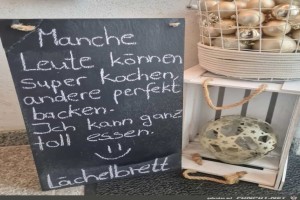 Manche
Leute können
super kochen,
andere perfekt
backen.
Ich kann ganz
toll essen.
Lächelbrett